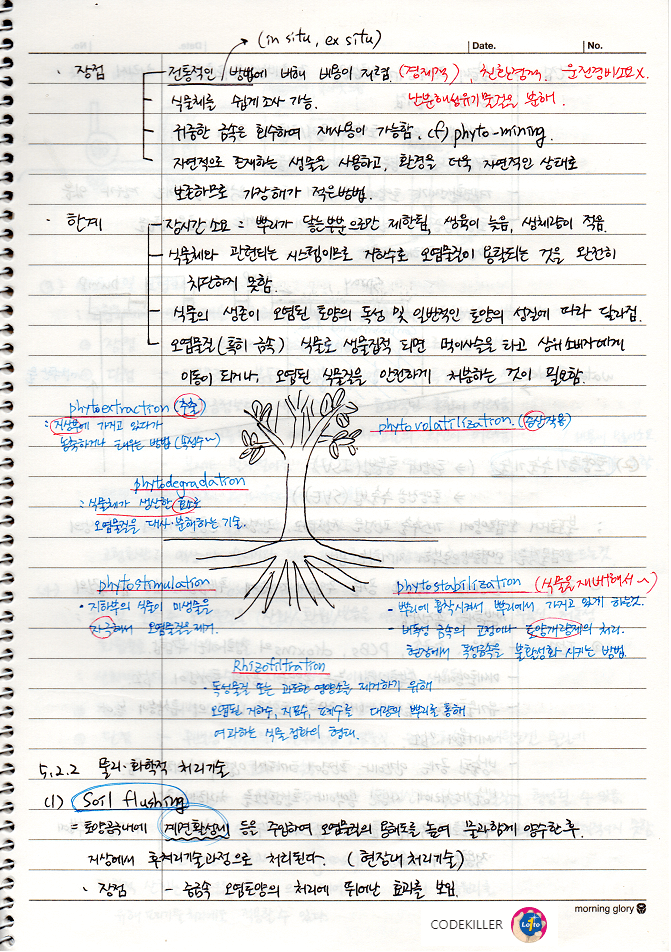 (in situ, ex situ)
Date. No.
· 장점 - 전통적인 방법에 비해 비용이 저렴 (경제적), 친환경적, 운전경비소모X.
- 식물체를 쉽게 고사 가능. 난분해성유기물질을 분해.
- 귀중한 금속은 회수하여 재사용이 가능함. cf) phyto-mining.
- 자연적으로 존재하는 생물을 사용하고, 환경을 더욱 자연적인 상태로
보존하므로 가장 해가 적은방법.
· 한계 - 장시간 소요 = 뿌리가 닿는부분으로만 제한됨, 생육이 늦음, 생체량이 적음.
- 식물체와 관련되는 시스템이므로 지하수로 오염물질이 용탈되는 것을 완전히
차단하지 못함.
- 식물의 생존이 오염된 토양의 독성 및 일반적인 토양의 성질에 따라 달라짐.
- 오염물질(특히 금속) 식물로 생물집적 되면 먹이사슬을 타고 상위소비자에게
이동이 되거나, 오염된 식물질을 안전하게 처분하는 것이 필요함.
phytoextraction (추출)
: 지상부에 가지고 있다가
농축하거나 태우는 방법
phytovolatilization. (증산작용)
phytodegradation
: 식물체가 생산한 효소로
오염물질을 대사·분해하는 기술.
phytostimulation
· 지하부의 식물이 미생물을
자극해서 오염물질을 제거.
phytostabilization (식물을 재배해서~)
· 뿌리에 흡착시켜서 뿌리에서 가지고 있게 하는것.
· 비독성 금속의 고정이나 토양개량제의 처리.
현장에서 독성금속을 불활성화 시키는 방법.
Rhizofiltration
· 독성물질 또는 과도한 영양소를 제거하기 위해
오염된 지하수, 지표수, 폐수를 대량의 뿌리를 통해
여과하는 식물 정화의 형태.
5.2.2 물리·화학적 처리기술
(1) Soil flushing
= 토양공극내에 계면활성제 등을 주입하여 오염물질의 용해도를 높여 물과함께 양수한후
지상에서 후처리기술과정으로 처리된다. (현장내 처리기술)
· 장점 - 중금속 오염토양의 처리에 뛰어난 효과를 보임.
morning glory
CODEKILLER
Lotto